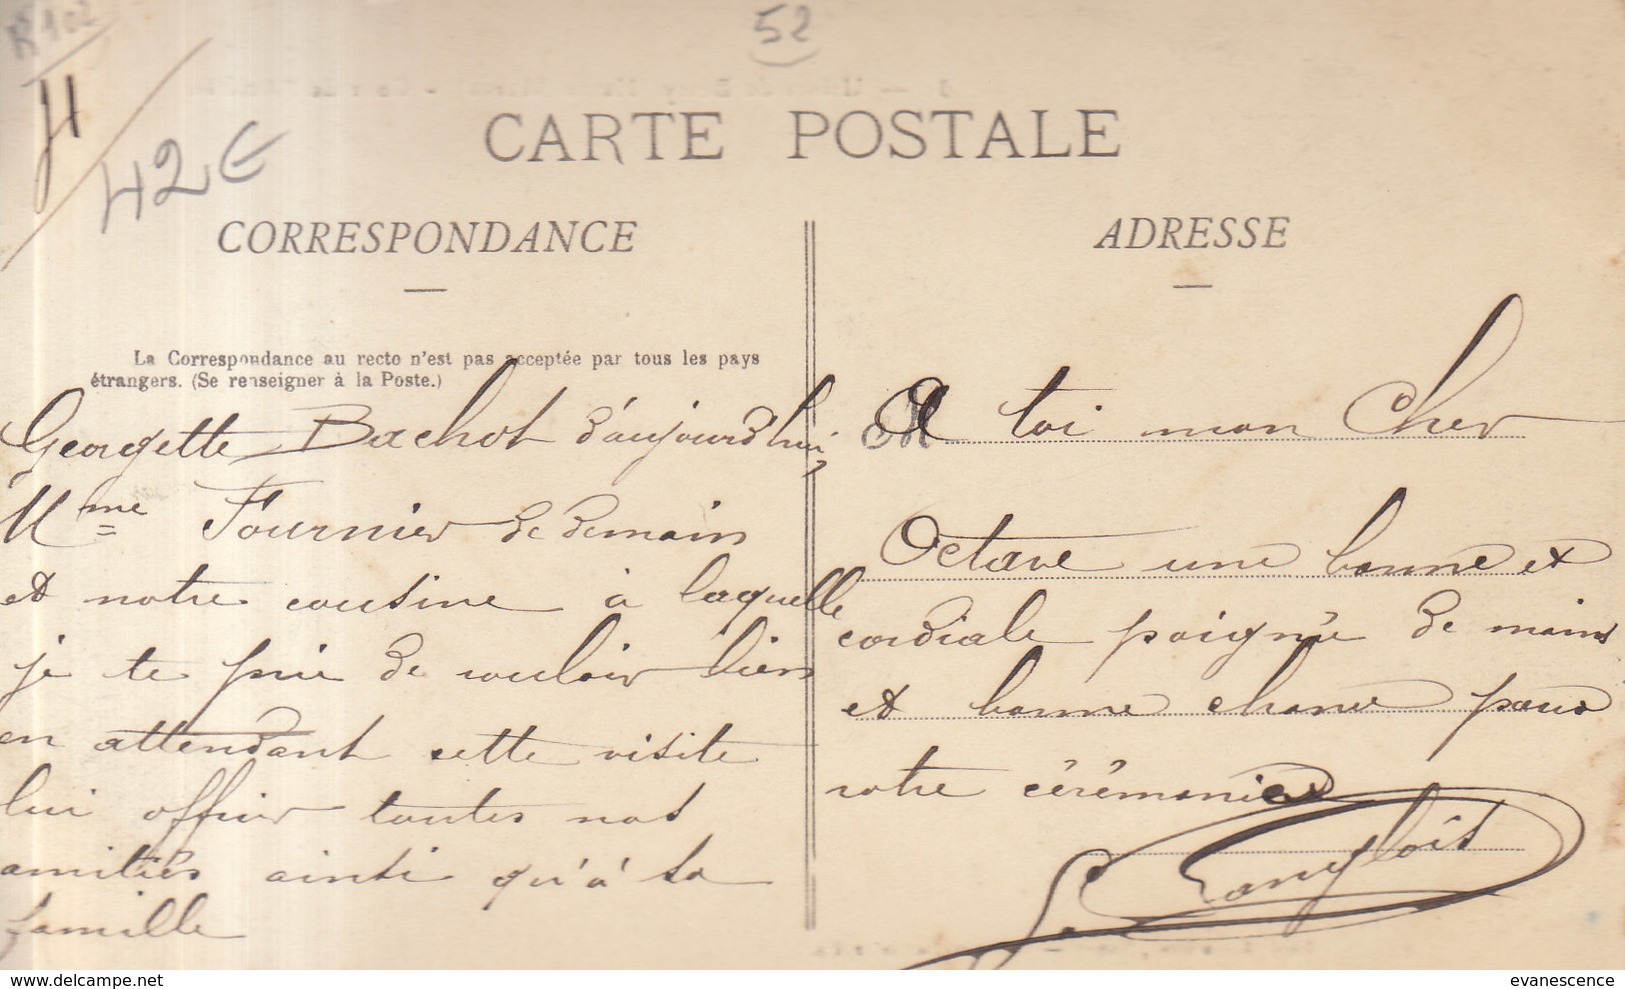 52
42€
CARTE POSTALE
CORRESPONDANCE
La Correspondance au recto n'est pas acceptée par tous les pays
étrangers. (Se renseigner à la Poste.)
Georgette Bachot d'aujourd'hui,
Mme Fournier de demain
et notre cousine à laquelle
je te prie de vouloir bien
en attendant cette visite
lui offrir toutes nos
amitiés ainsi qu'à sa
famille
ADRESSE
M
A toi mon Cher
Octave une bonne et
cordiale poignée de mains
et bonne chance pour
votre cérémonie
Langlois
delcampe.net
evanescence